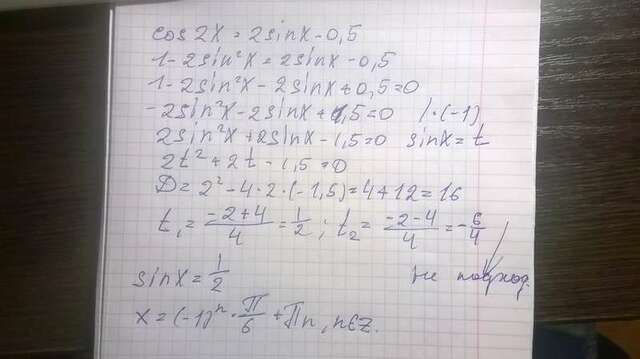 cos 2x = 2sinx - 0,5
1 - 2sin²x = 2sinx - 0,5
1 - 2sin²x - 2sinx + 0,5 = 0
-2sin²x - 2sinx + 1,5 = 0 / · (-1)
2sin²x + 2sinx - 1,5 = 0 sinx = t
2t² + 2t - 1,5 = 0
D = 2² - 4 · 2 · (-1,5) = 4 + 12 = 16
t₁ = (-2+4)/4 = 1/2 ; t₂ = (-2-4)/4 = -6/4
sinx = 1/2 не подход.
x = (-1)ⁿ · П/6 + Пn, n∈Z.